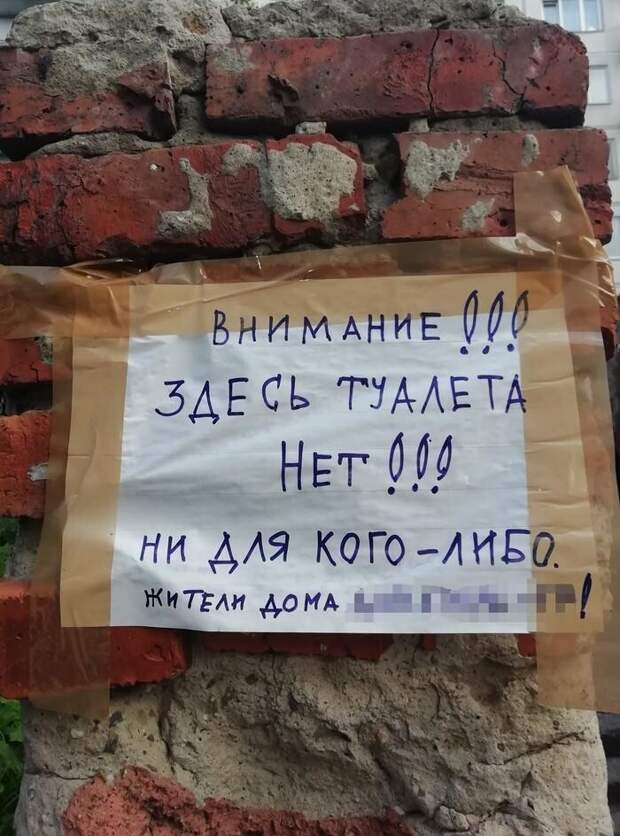 ВНИМАНИЕ!!!
ЗДЕСЬ ТУАЛЕТА
НЕТ!!!
НИ ДЛЯ КОГО-ЛИБО.
ЖИТЕЛИ ДОМА !